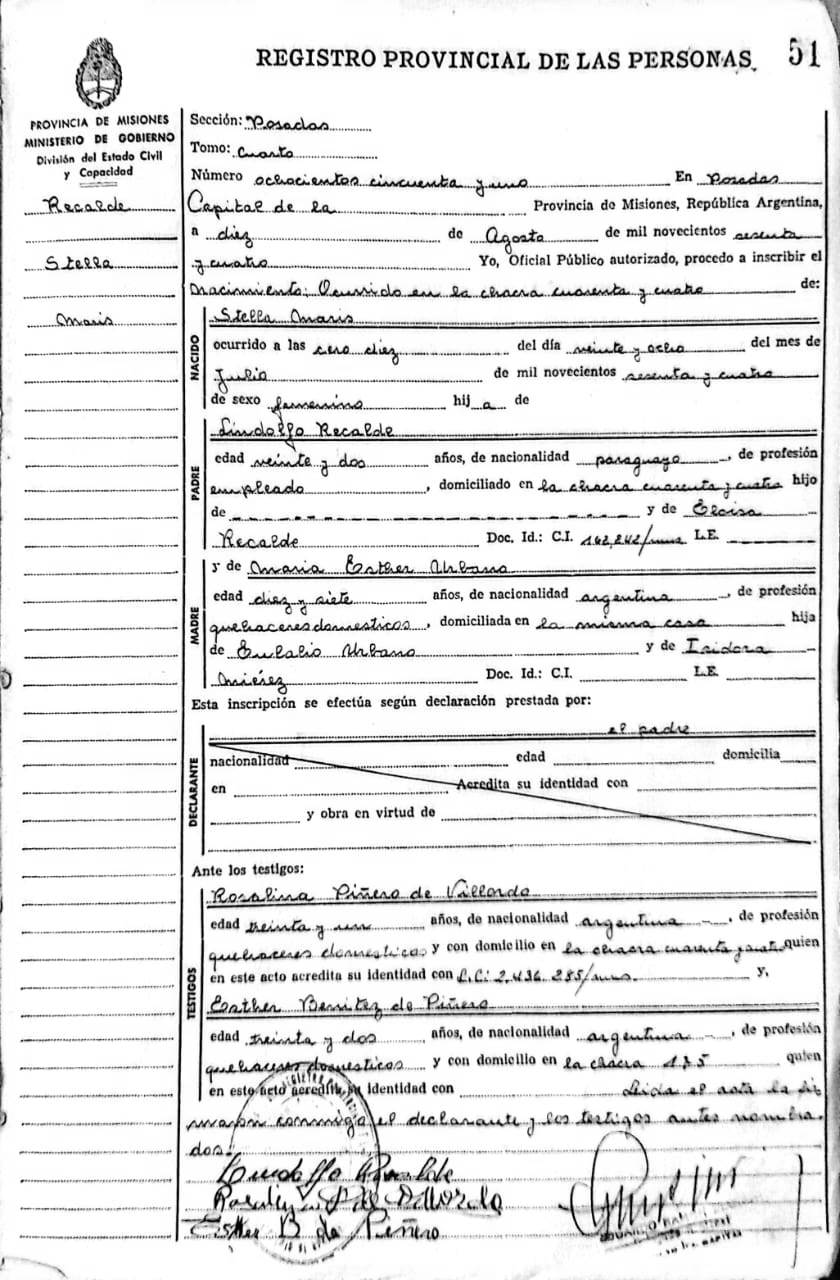 REGISTRO PROVINCIAL DE LAS PERSONAS. 51
PROVINCIA DE MISIONES
MINISTERIO DE GOBIERNO
División del Estado Civil
y Capacidad
Recalde
Stella
Maris
Sección: Posadas
Tomo: Cuarto
Número ochocientos cincuenta y uno En Posadas
Capital de la Provincia de Misiones, República Argentina,
a diez de Agosto de mil novecientos sesenta
y cuatro Yo, Oficial Público autorizado, procedo a inscribir el
nacimiento: Ocurrido en la chacra cuarenta y cuatro de:
NACIDO
Stella Maris
ocurrido a las cero diez del día veinte y ocho del mes de
Julio de mil novecientos sesenta y cuatro
de sexo femenino hij a de
PADRE
Lindolfo Recalde
edad veinte y dos años, de nacionalidad paraguayo, de profesión
empleado, domiciliado en la chacra cuarenta y cuatro hijo
de y de Eloisa
Recalde Doc. Id.: C.I. 162,242/mnes L.E.
MADRE
y de Maria Esther Urbano
edad diez y siete años, de nacionalidad argentina, de profesión
quehaceres domesticos, domiciliada en la misma casa hija
de Eulalio Urbano y de Isidora
Doc. Id.: C.I. L.E.
Esta inscripción se efectúa según declaración prestada por:
el padre
DECLARANTE
nacionalidad edad domicilia
en Acredita su identidad con
y obra en virtud de
Ante los testigos:
TESTIGOS
Rosalina Piñero de Villordo
edad treinta y un años, de nacionalidad argentina, de profesión
quehaceres domesticos y con domicilio en la chacra cuarenta y cuatro quien
en este acto acredita su identidad con L.C: 2.436.285/mnes. y,
Esther Benitez de Piñero
edad treinta y dos años, de nacionalidad argentina, de profesión
quehaceres domesticos y con domicilio en la chacra 175 quien
en este acto acredita su identidad con Leida el acta la fir
maron conmigo el declarante y los testigos antes nombra
dos.
Lindolfo Recalde
Esther B de Piñero